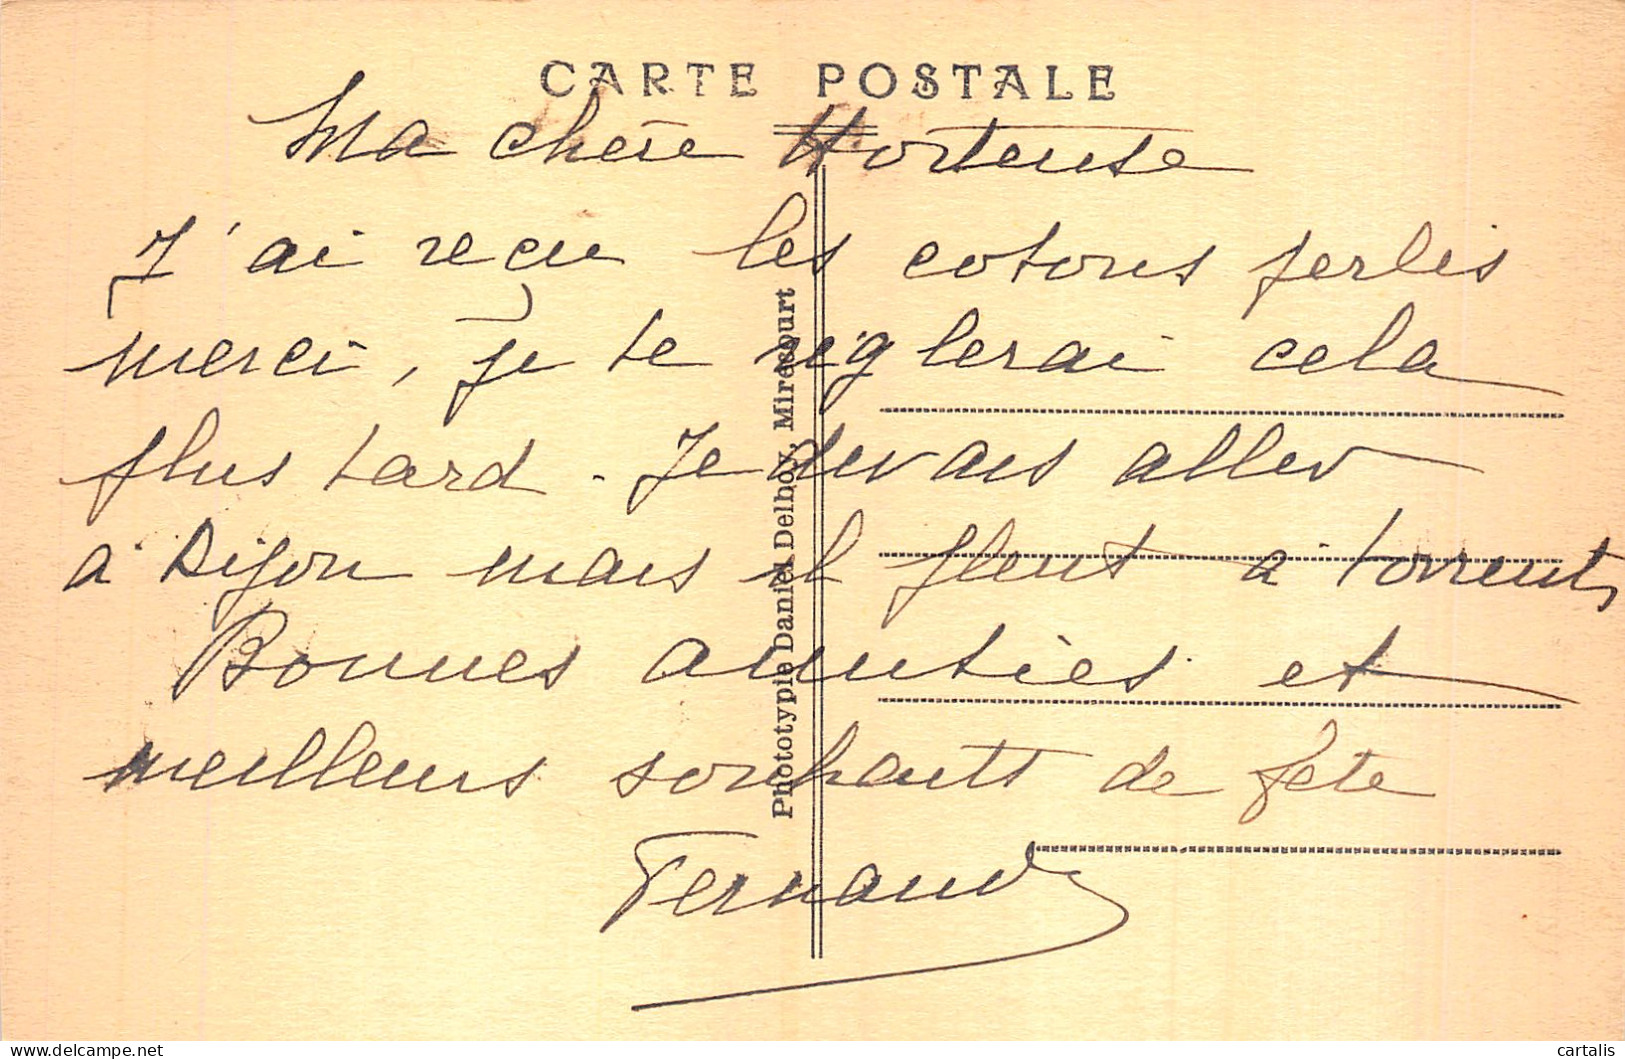 CARTE POSTALE
Ma chère Hortense
J'ai reçu les cotons perlés
merci, je te réglerai cela
plus tard. Je devais aller
à Dijon mais il pleut à torrents
Bonnes amitiés et
meilleurs souhaits de fête
Fernand
Phototypie Daniel Delboy, Mirecourt
cartalis